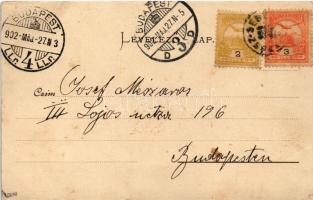 BUDAPEST
902 MÁJ. 27. N 3
4
BUDAPEST
902 MÁJ. 27. N 5
D 3 D
LEVELEZ LAP.
2
3
Czim Josef Miszaros
III Lajos utcza 196
Budapesten